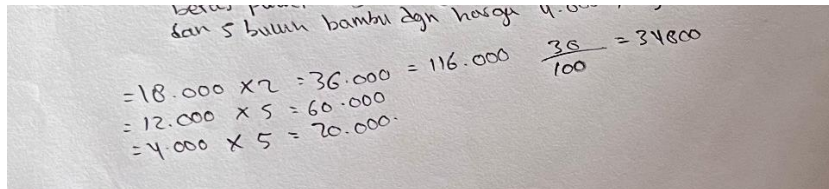 dan 5 buluh bambu dgn harga
=18.000 x 2 = 36.000 = 116.000 30/100 = 34800
= 12.000 x 5 = 60.000
= 4.000 x 5 = 20.000.